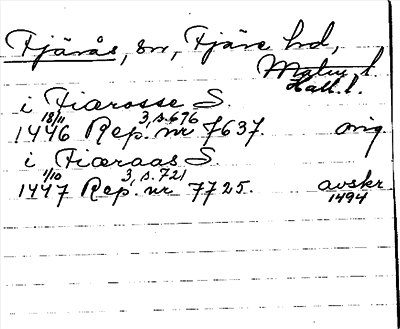 Fjärås, sn, Fjäre hd,
Malm. l.
Hall. l.
i Fiærosse S.
18/11 3, s. 676
1446 Rep. nr 7637. orig.
i Fiæraas S.
1/10 3, s. 721
1447 Rep. nr 7725. avskr
1494